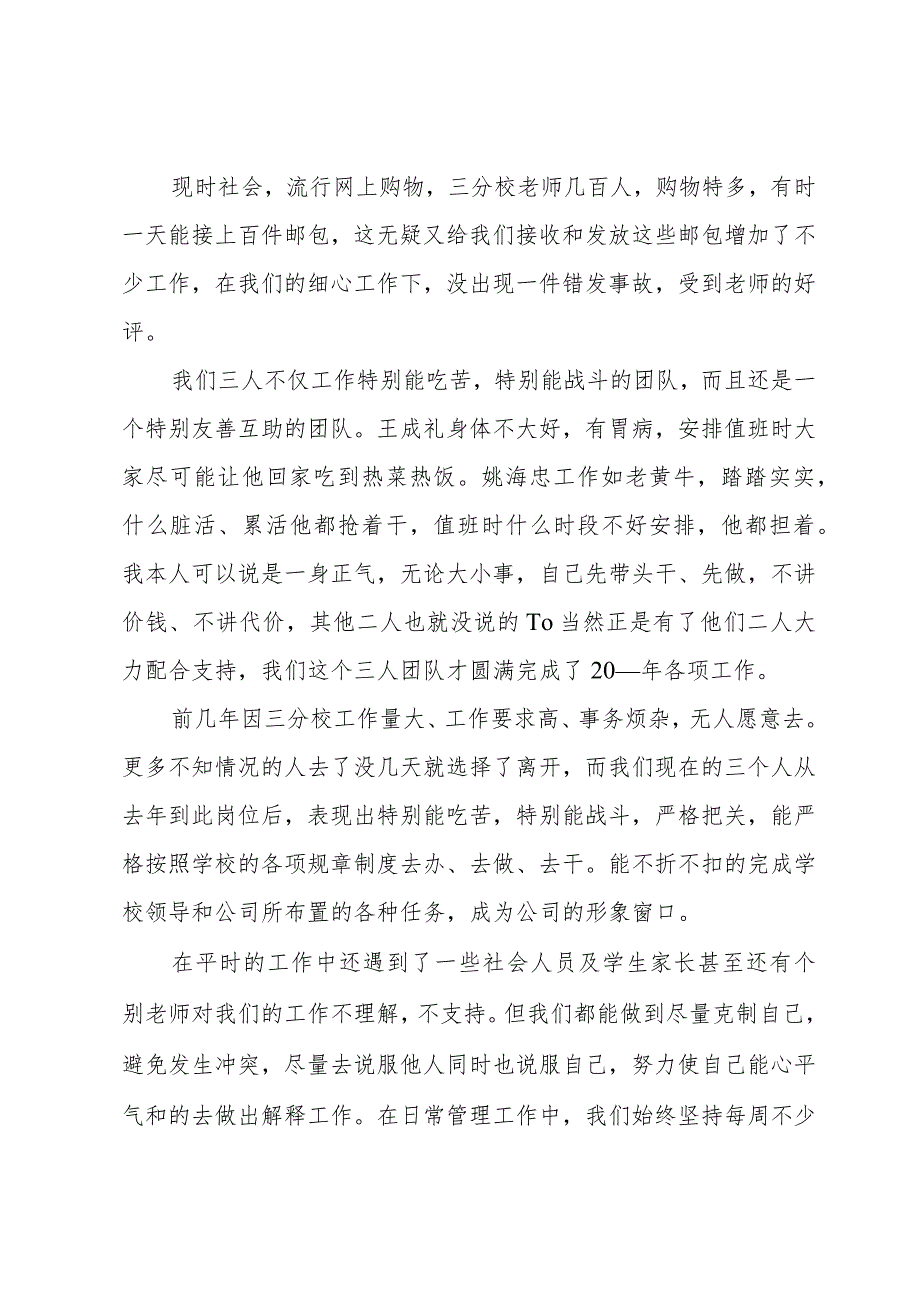 现时社会，流行网上购物，三分校老师几百人，购物特多，有时
一天能接上百件邮包，这无疑又给我们接收和发放这些邮包增加了不
少工作，在我们的细心工作下，没出现一件错发事故，受到老师的好
评。
我们三人不仅工作特别能吃苦，特别能战斗的团队，而且还是一
个特别友善互助的团队。王成礼身体不大好，有胃病，安排值班时大
家尽可能让他回家吃到热菜热饭。姚海忠工作如老黄牛，踏踏实实，
什么脏活、累活他都抢着干，值班时什么时段不好安排，他都担着。
我本人可以说是一身正气，无论大小事，自己先带头干、先做，不讲
价钱、不讲代价，其他二人也就没说的 To 当然正是有了他们二人大
力配合支持，我们这个三人团队才圆满完成了 20—年各项工作。
前几年因三分校工作量大、工作要求高、事务烦杂，无人愿意去。
更多不知情况的人去了没几天就选择了离开，而我们现在的三个人从
去年到此岗位后，表现出特别能吃苦，特别能战斗，严格把关，能严
格按照学校的各项规章制度去办、去做、去干。能不折不扣的完成学
校领导和公司所布置的各种任务，成为公司的形象窗口。
在平时的工作中还遇到了一些社会人员及学生家长甚至还有个
别老师对我们的工作不理解，不支持。但我们都能做到尽量克制自己，
避免发生冲突，尽量去说服他人同时也说服自己，努力使自己能心平
气和的去做出解释工作。在日常管理工作中，我们始终坚持每周不少